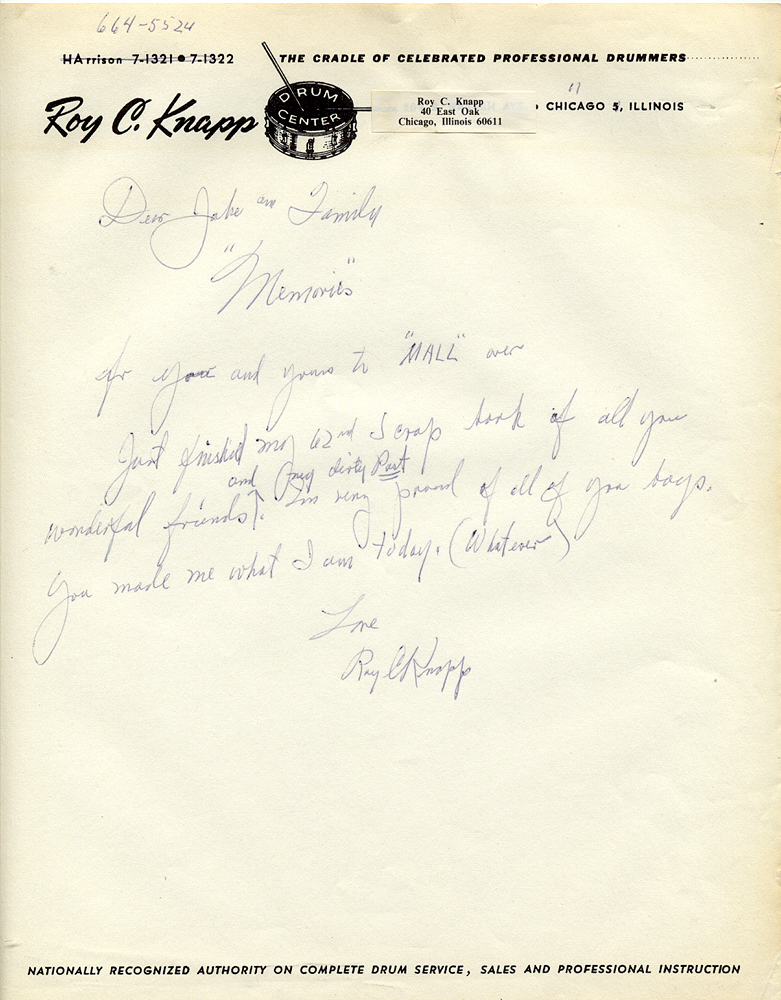 664-5524
HArrison 7-1321 • 7-1322
THE CRADLE OF CELEBRATED PROFESSIONAL DRUMMERS
Roy C. Knapp
DRUM CENTER
Roy C. Knapp
40 East Oak
Chicago, Illinois 60611
11
CHICAGO 5, ILLINOIS
Dear Jake an Family
"Memories"
for you and yours to "MALL" over
Just finished my 62nd Scrap book of all you
and (my dirty Past
wonderful friends). Im very proud of all of you boys.
You made me what I am today. (Whatever)
Love
Roy C Knapp
NATIONALLY RECOGNIZED AUTHORITY ON COMPLETE DRUM SERVICE, SALES AND PROFESSIONAL INSTRUCTION